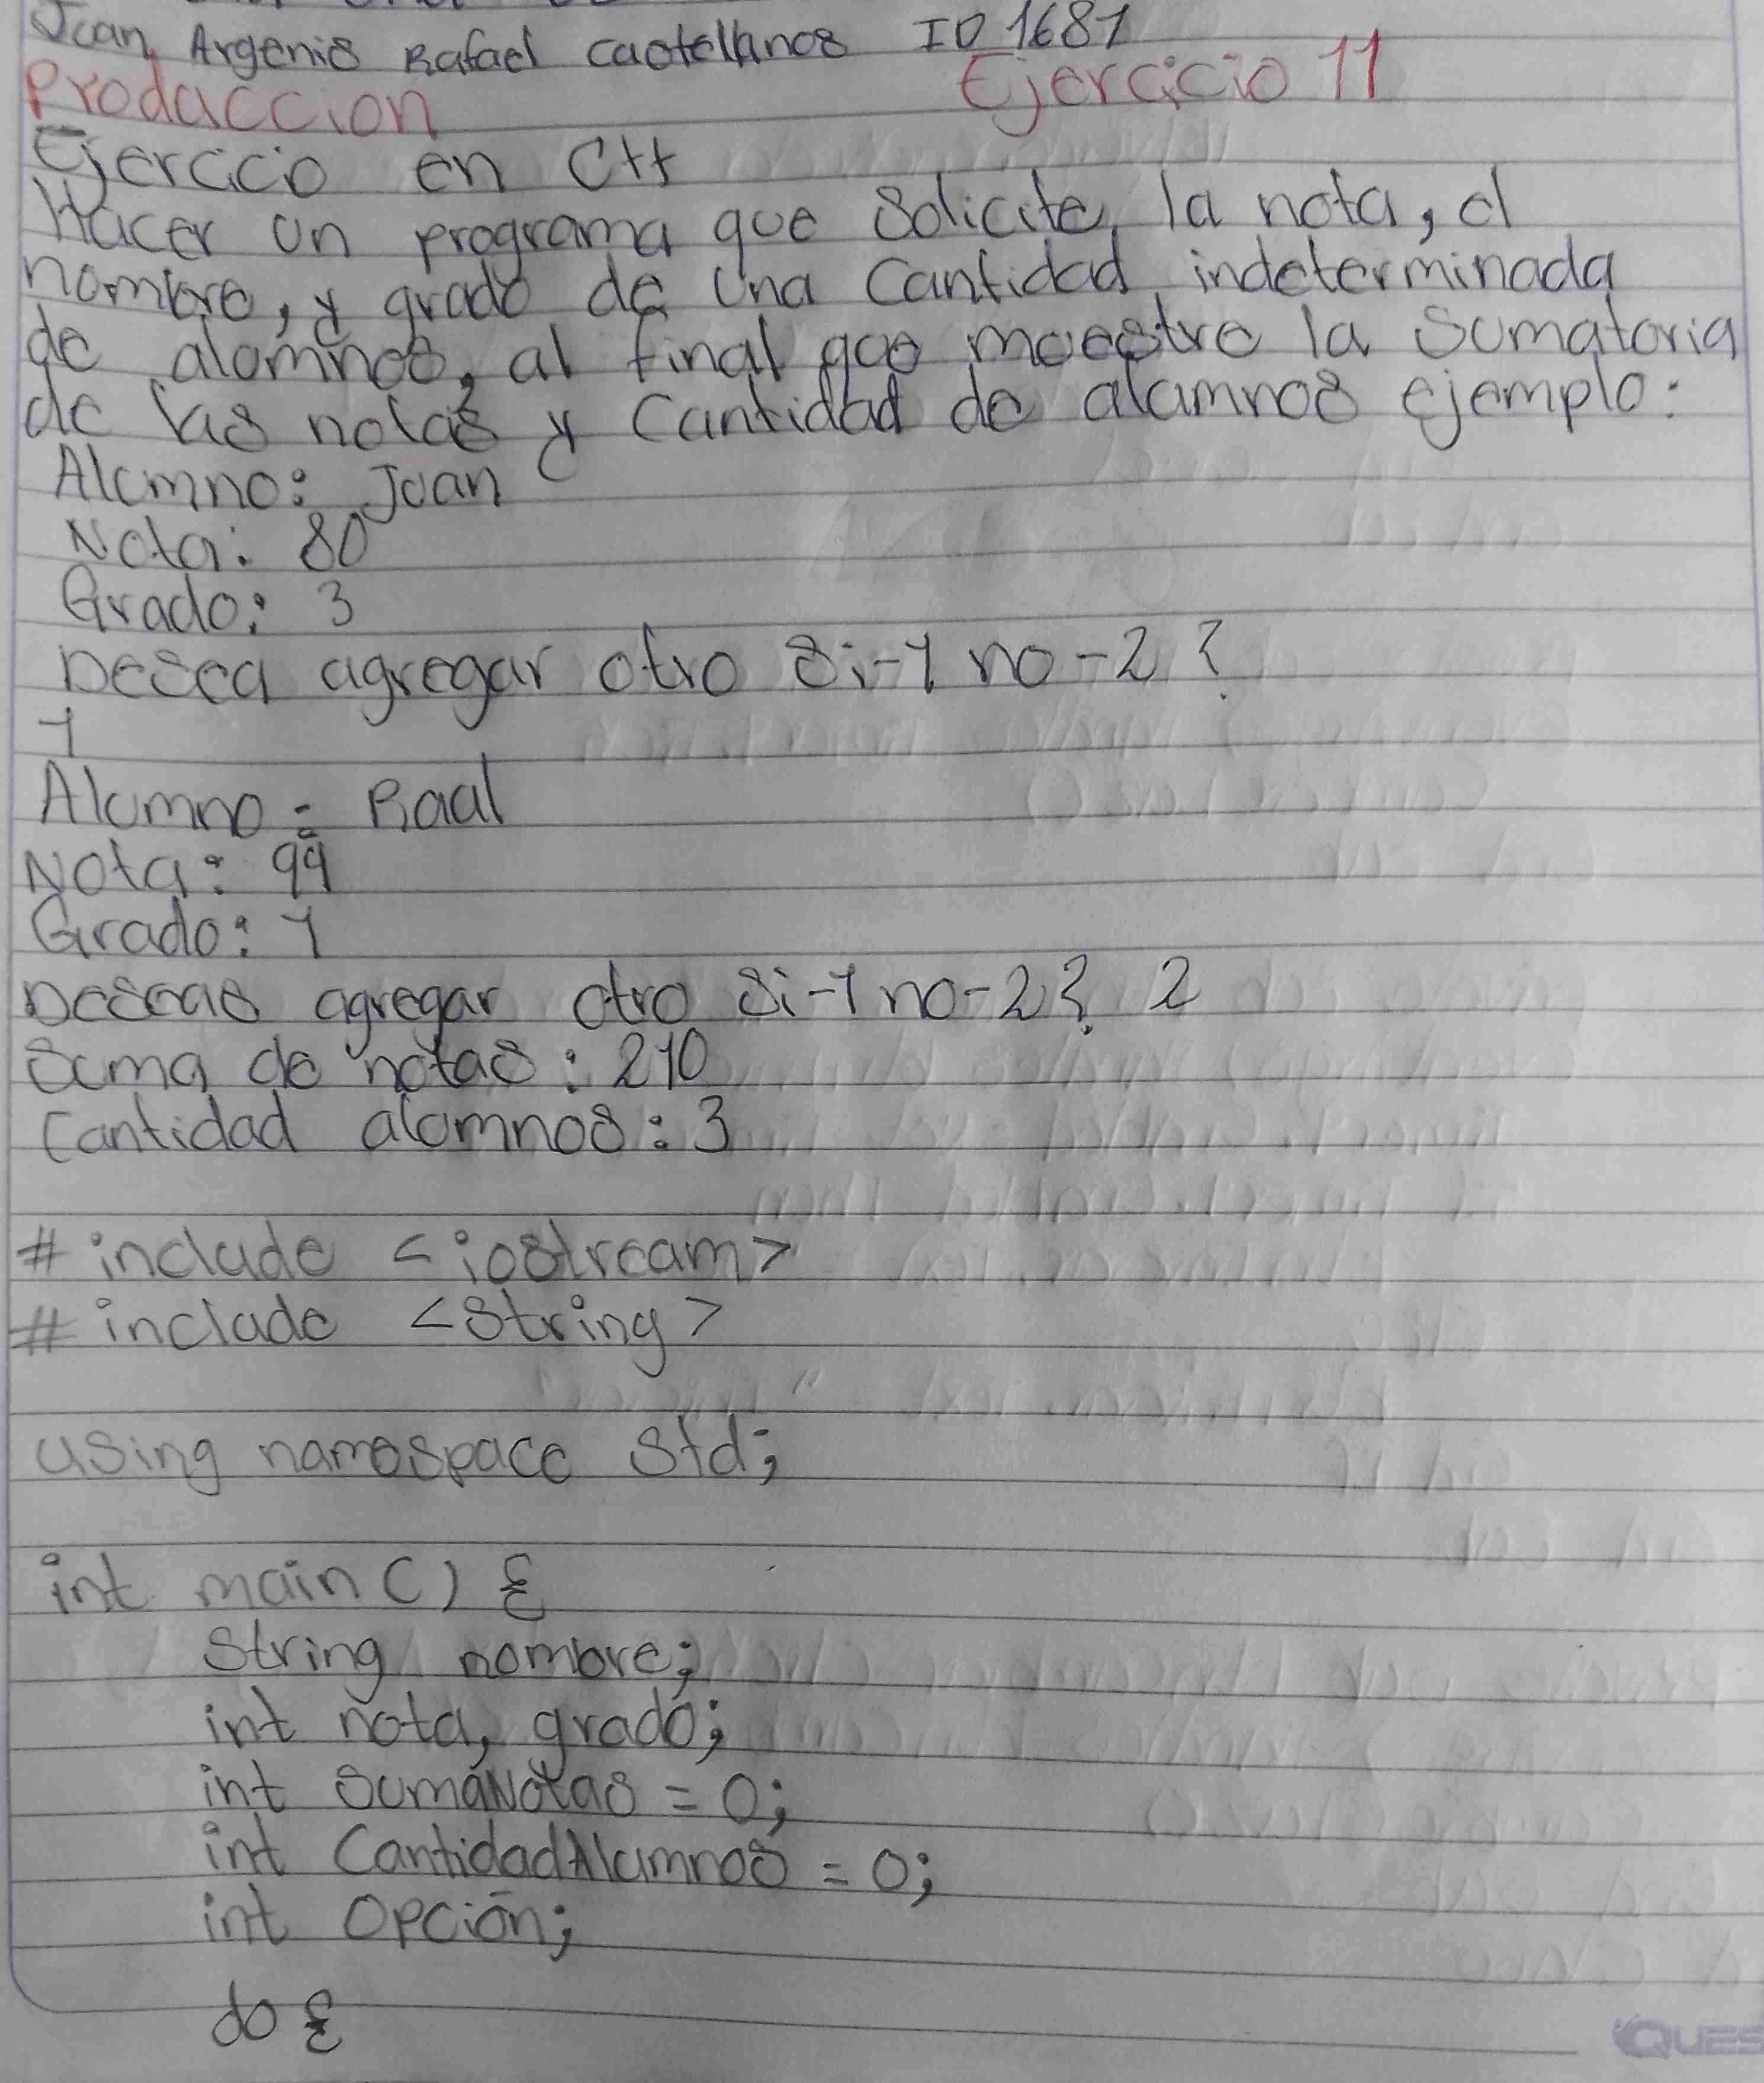 Juan Argenis Rafael Castellanos ID 1681
Producción Ejercicio 11
Ejercicio en C++
Hacer un programa que solicite la nota, el
nombre, y grado de una cantidad indeterminada
de alumnos, al final que muestre la sumatoria
de las notas y cantidad de alumnos ejemplo:
Alumno: Juan
Nota: 80
Grado: 3
Desea agregar otro si-1 no-2?
1
Alumno: Raul
Nota: 99
Grado: 1
Deseas agregar otro si-1 no-2? 2
Suma de notas: 210
Cantidad alumnos: 3
# include <iostream>
# include <string>
using namespace std;
int main() {
string nombre;
int nota, grado;
int sumaNotas = 0;
int CantidadAlumnos = 0;
int Opción;
do {
QUES